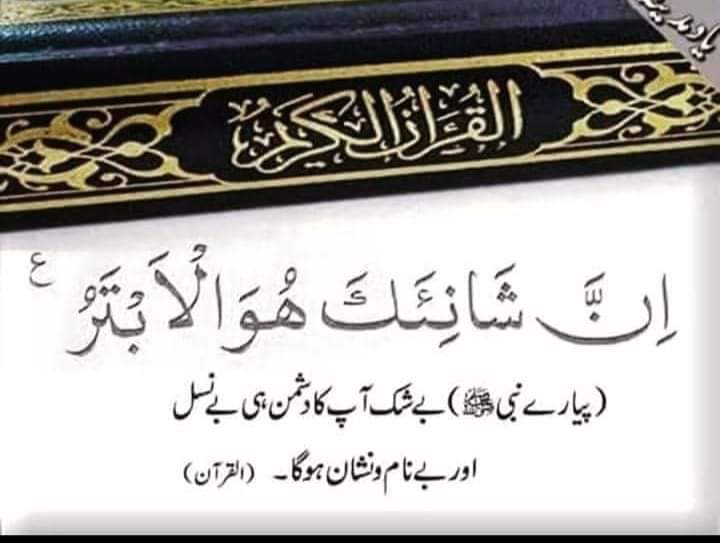 یاد مدینہ
القرآن الکریم
اِنَّ شَانِئَكَ هُوَ الْاَبْتَرُ ع
(پیارے نبی ﷺ) بے شک آپ کا دشمن ہی بے نسل
اور بے نام و نشان ہوگا۔ (القرآن)